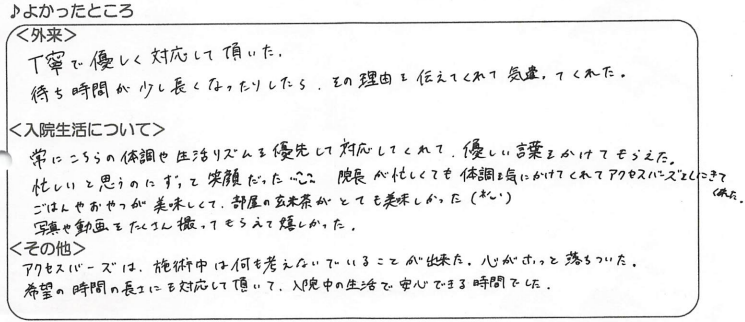 ♪よかったところ
<外来>
丁寧で優しく対応して頂いた。
待ち時間が少し長くなったりしたら、その理由を伝えてくれて気遣ってくれた。
<入院生活について>
常にこちらの体調や生活リズムを優先して対応してくれて、優しい言葉をかけてもらえた。
忙しいと思うのにずっと笑顔だった 院長が忙しくても体調を気にかけてくれてアクセスバーズをしにきてくれた。
ごはんやおやつが美味しくて、部屋の玄米茶がとても美味しかった
写真や動画をたくさん撮ってもらえて嬉しかった。
<その他>
アクセスバーズは、施術中は何も考えないでいることが出来た。心がホッと落ちついた。
希望の時間の長さにも対応して頂いて、入院中の生活で安心できる時間でした。